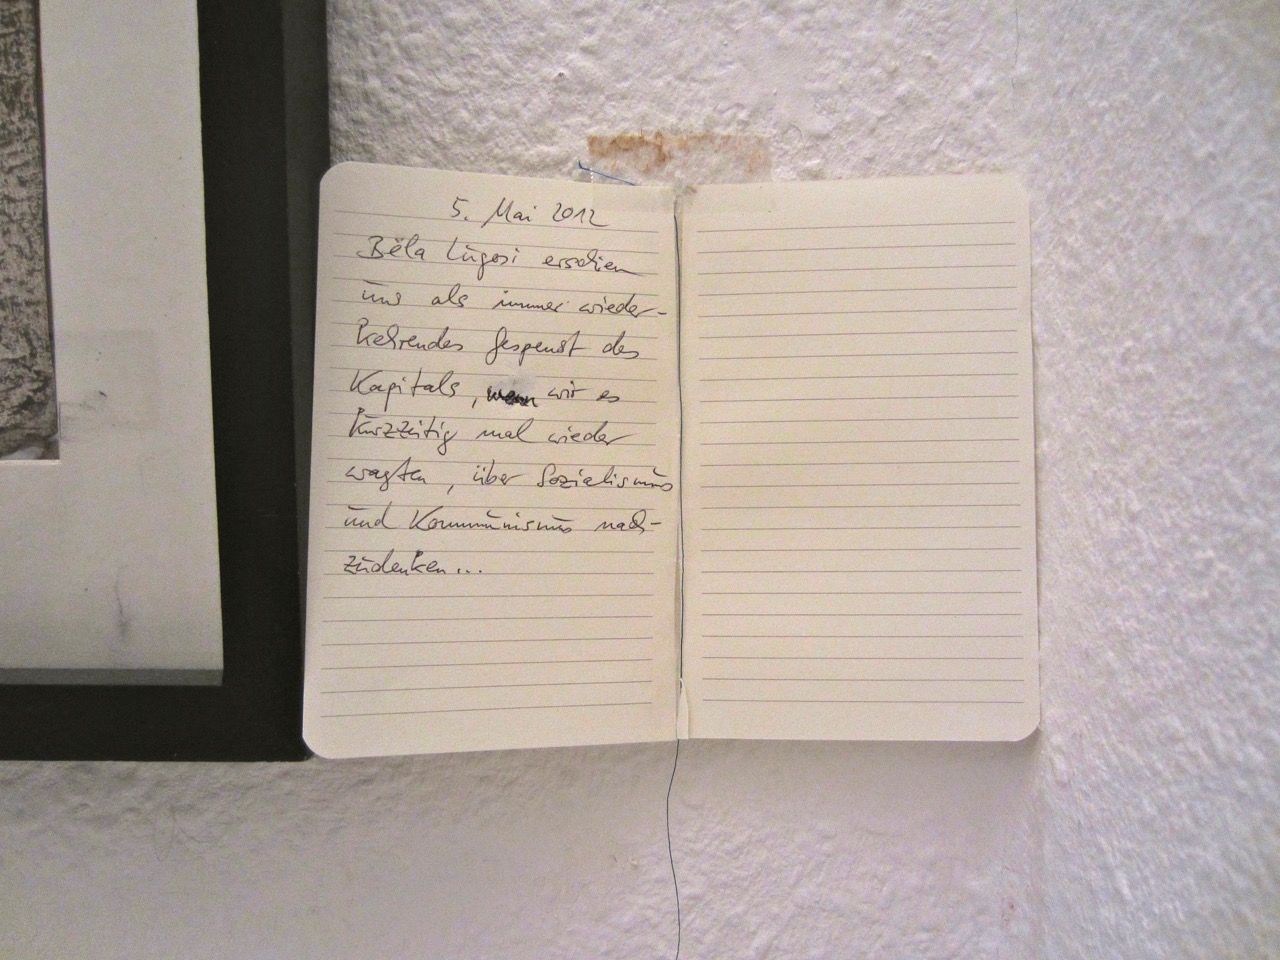 5. Mai 2012
Béla Lugosi erschien
uns als immer wieder-
kehrendes Gespenst des
Kapitals, wenn wir es
kurzzeitig mal wieder
wagten, über Sozialismus
und Kommunismus nach-
zudenken...